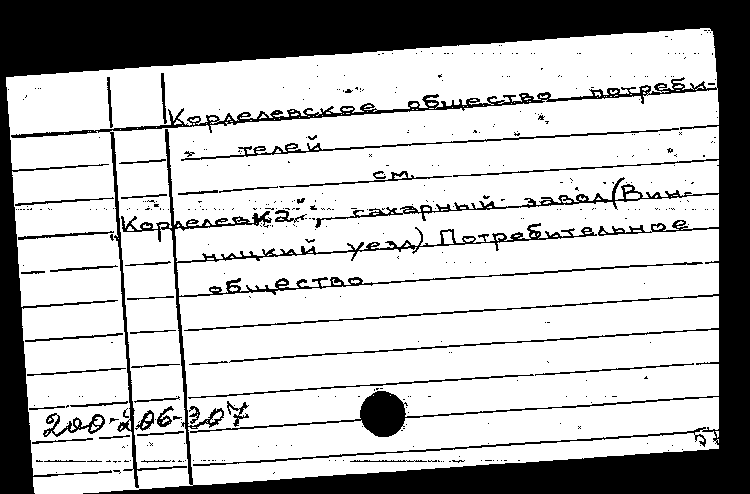 Корделевское общество потреби-
телей
см.
"Корделевка", сахарный завод (Вин-
ницкий уезд). Потребительное
общество
200-206-207